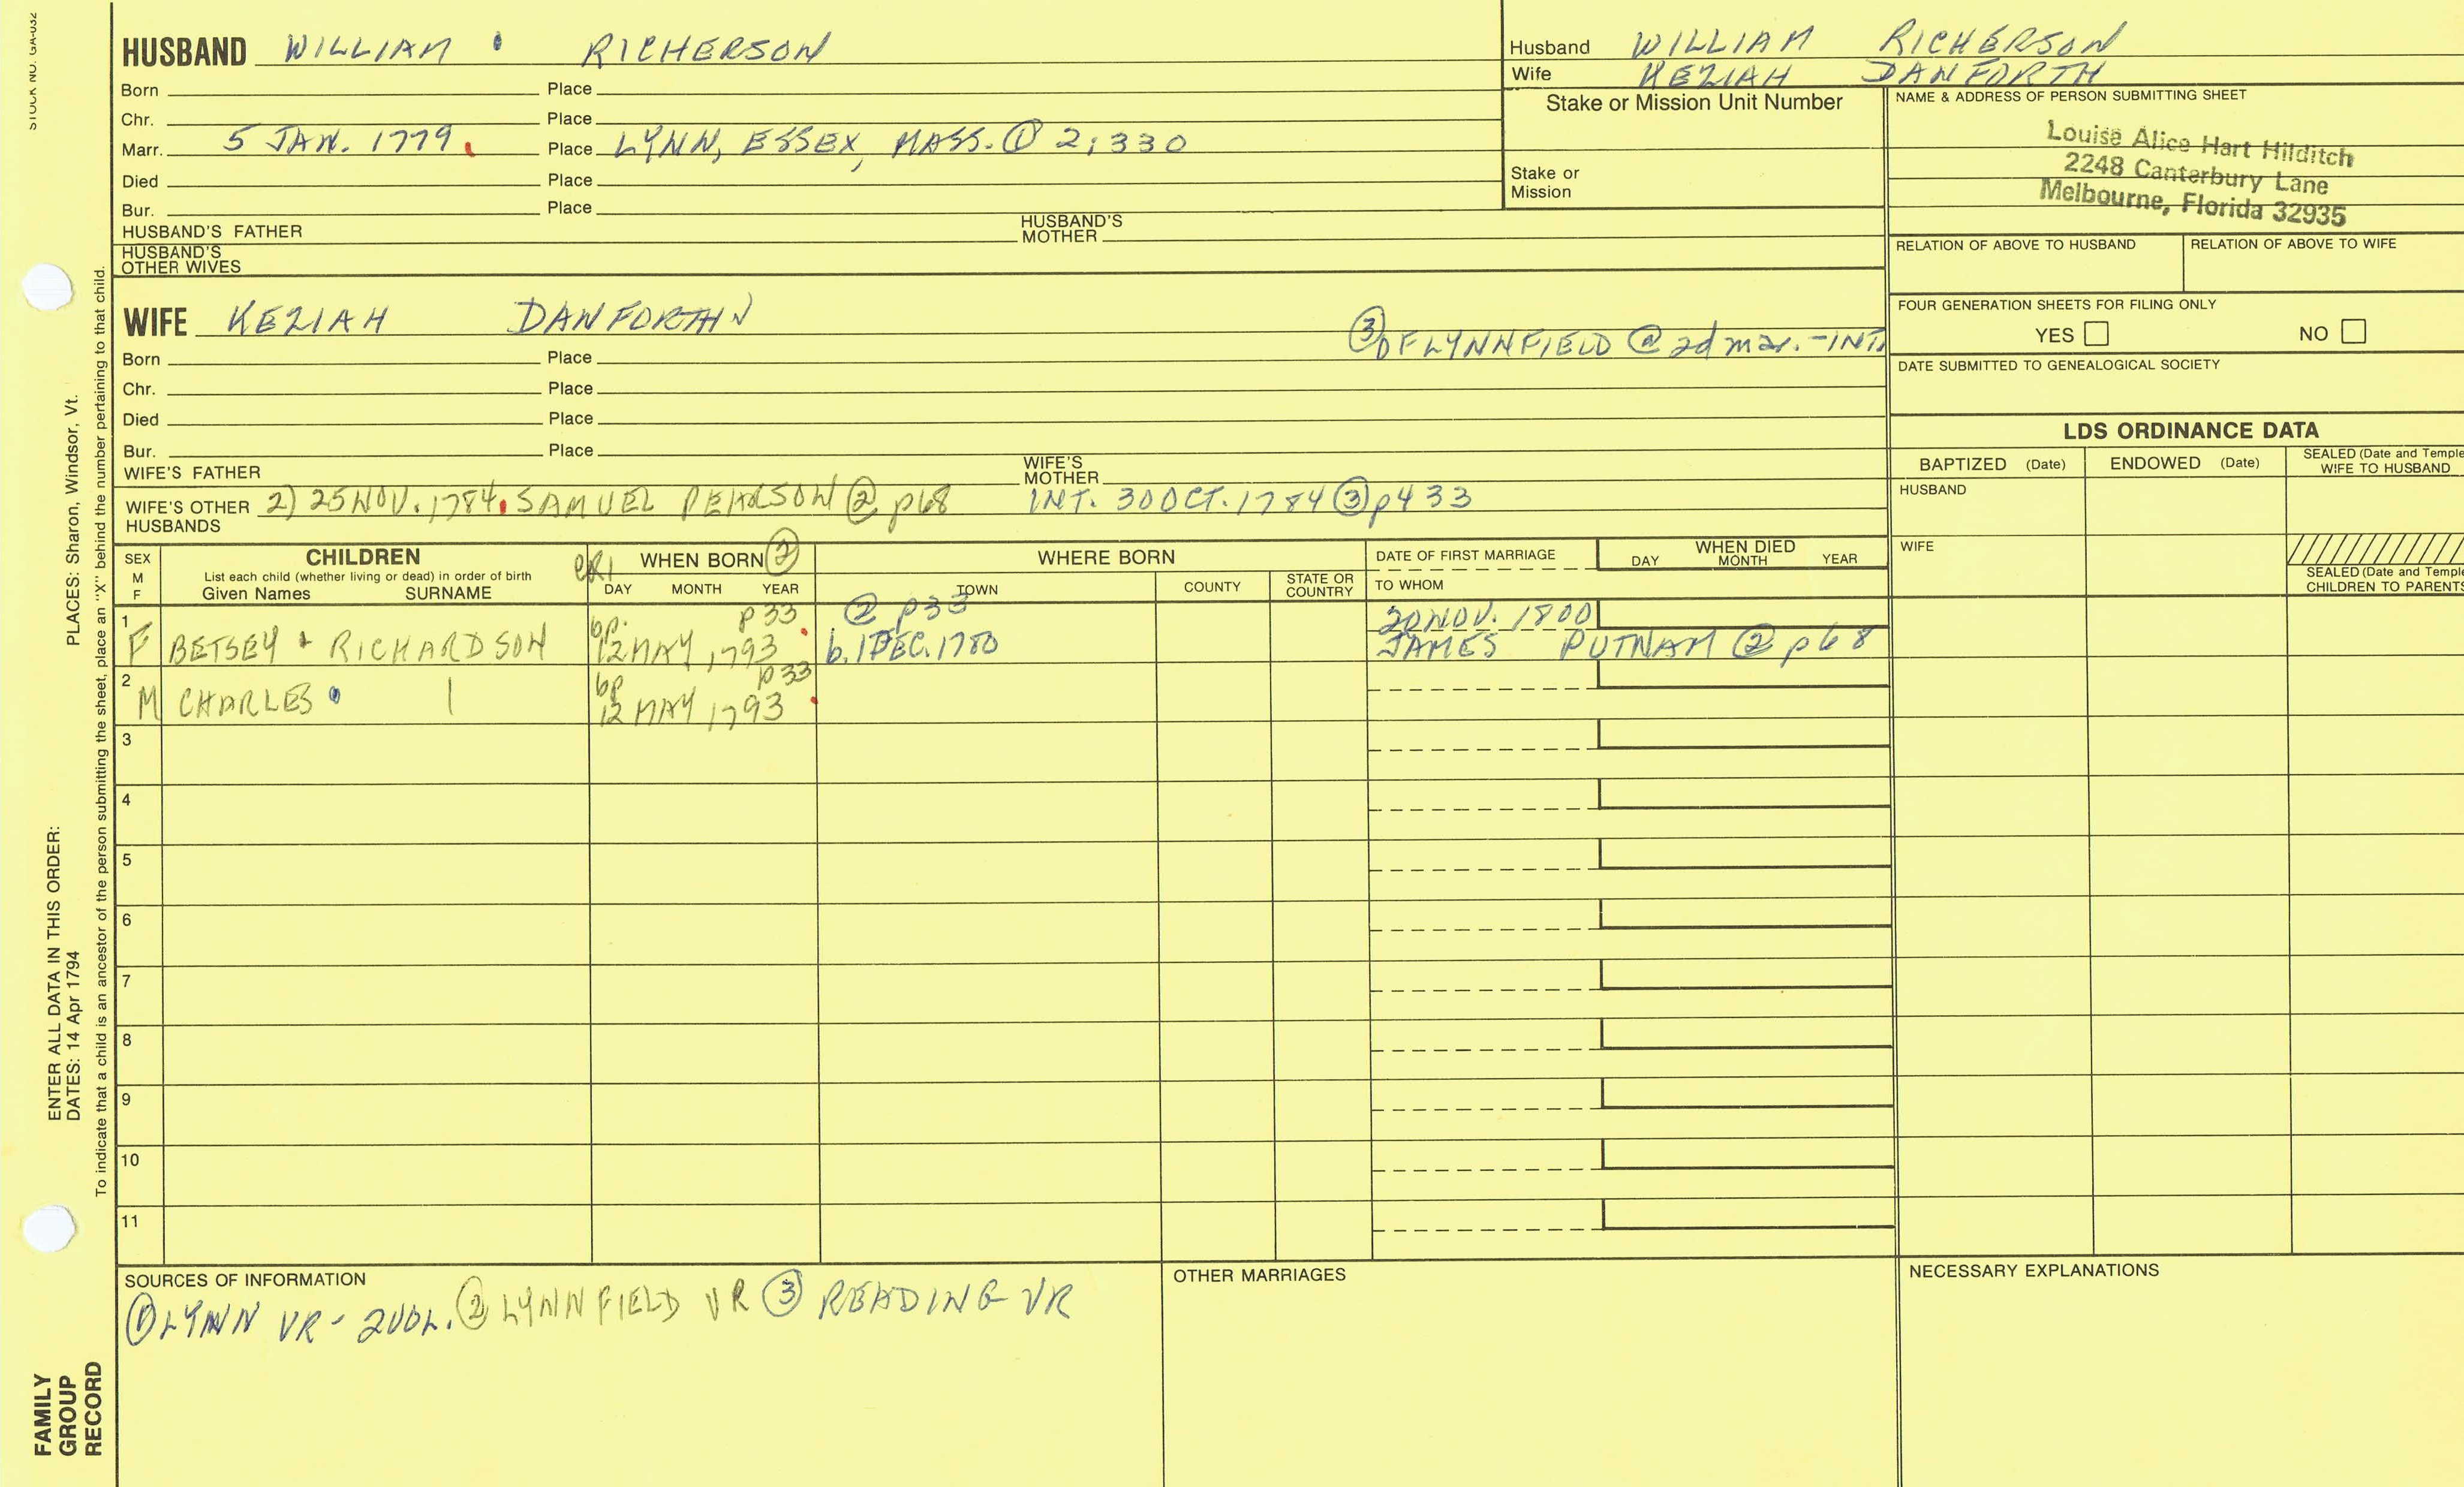 STOCK NO. GA-032
HUSBAND WILLIAM RICHERSON
Born Place
Chr. Place
Marr. 5 JAN. 1779. Place LYNN, ESSEX, MASS. ① 2:330
Died Place
Bur. Place
HUSBAND'S FATHER HUSBAND'S MOTHER
HUSBAND'S OTHER WIVES
Husband WILLIAM RICHERSON
Wife KEZIAH DANFORTH
Stake or Mission Unit Number
Stake or Mission
NAME & ADDRESS OF PERSON SUBMITTING SHEET
Louise Alice Hart Hilditch
2248 Canterbury Lane
Melbourne, Florida 32935
RELATION OF ABOVE TO HUSBAND RELATION OF ABOVE TO WIFE
FOUR GENERATION SHEETS FOR FILING ONLY
YES NO
DATE SUBMITTED TO GENEALOGICAL SOCIETY
WIFE KEZIAH DANFORTH
③ OF LYNNFIELD @ 2d mar.-INT.
Born Place
Chr. Place
Died Place
Bur. Place
WIFE'S FATHER WIFE'S MOTHER
WIFE'S OTHER HUSBANDS 2) 25 NOV. 1784. SAMUEL PEARSON ② p68 INT. 30 OCT. 1784 ③ p433
LDS ORDINANCE DATA
BAPTIZED (Date) ENDOWED (Date) SEALED (Date and Temple WIFE TO HUSBAND
HUSBAND
WIFE
SEALED (Date and Temple CHILDREN TO PARENTS
SEX M F
CHILDREN
List each child (whether living or dead) in order of birth
Given Names SURNAME
CR1 WHEN BORN ②
DAY MONTH YEAR
WHERE BORN
TOWN COUNTY STATE OR COUNTRY
DATE OF FIRST MARRIAGE
TO WHOM
WHEN DIED
DAY MONTH YEAR
1 bp. p33 ② p33 20 NOV. 1800
F BETSEY RICHARDSON 12 MAY 1793 b. 1 DEC. 1780 JAMES PUTNAM ② p68
2 bp p33
M CHARLES | 12 MAY 1793
3
4
5
6
7
8
9
10
11
SOURCES OF INFORMATION
① LYNN VR - 2VOL. ② LYNNFIELD VR ③ READING VR
OTHER MARRIAGES
NECESSARY EXPLANATIONS
ENTER ALL DATA IN THIS ORDER:
DATES: 14 Apr 1794 PLACES: Sharon, Windsor, Vt.
To indicate that a child is an ancestor of the person submitting the sheet, place an "X" behind the number pertaining to that child.
FAMILY
GROUP
RECORD